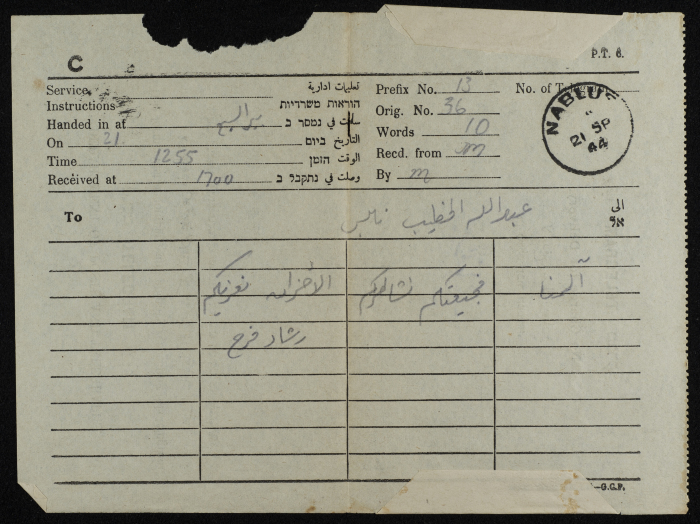 C
P.T. 6.
Service تعليمات ادارية
Instructions הוראות משרדיות
Handed in at سلمت في נמסר ב
On 21 التاريخ ביום
Time 1255 الوقت הזמן
Received at 1700 وصلت في נתקבל ב
Prefix No. 13 No. of
Orig. No. 36
Words 10
Recd. from m
By m
NABLUS
21 SP
44
To عبدالله الخطيب نابلس الى אל
آلمنا فجيعتكم نشاطركم الأحزان نعزيكم
رشاد فرح
—G.C.P.